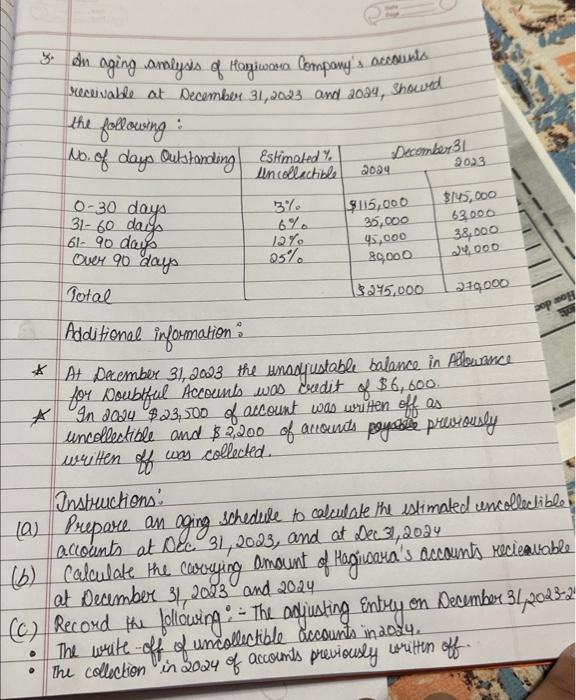 Date
Page
3. An aging analysis of Hagiwara Company's accounts
receivable at December 31, 2023 and 2024, Showed
the following :
No. of days Outstanding Estimated % Uncollectible December 31
2024 2023
0-30 days 3% $115,000 $145,000
31-60 days 6% 35,000 63,000
61-90 days 12% 45,000 38,000
Over 90 days 25% 80,000 24,000
Total $275,000 270,000
Additional information :
* At December 31, 2023 the unadjustable balance in Allowance
for Doubtful Accounts was credit of $6,600.
* In 2024 $23,500 of account was written off as
uncollectible and $2,200 of accounts payable previously
written off was collected.
Instructions:
(a) Prepare an aging schedule to calculate the estimated uncollectible
accounts at Dec. 31, 2023, and at Dec 31, 2024
(b) Calculate the carrying amount of Hagiwara's accounts recieavable
at December 31, 2023 and 2024
(c) Record the following :- The adjusting Entry on December 31, 2023-2
• The write-off of uncollectible accounts in 2024.
• The collection in 2024 of accounts previously written off.